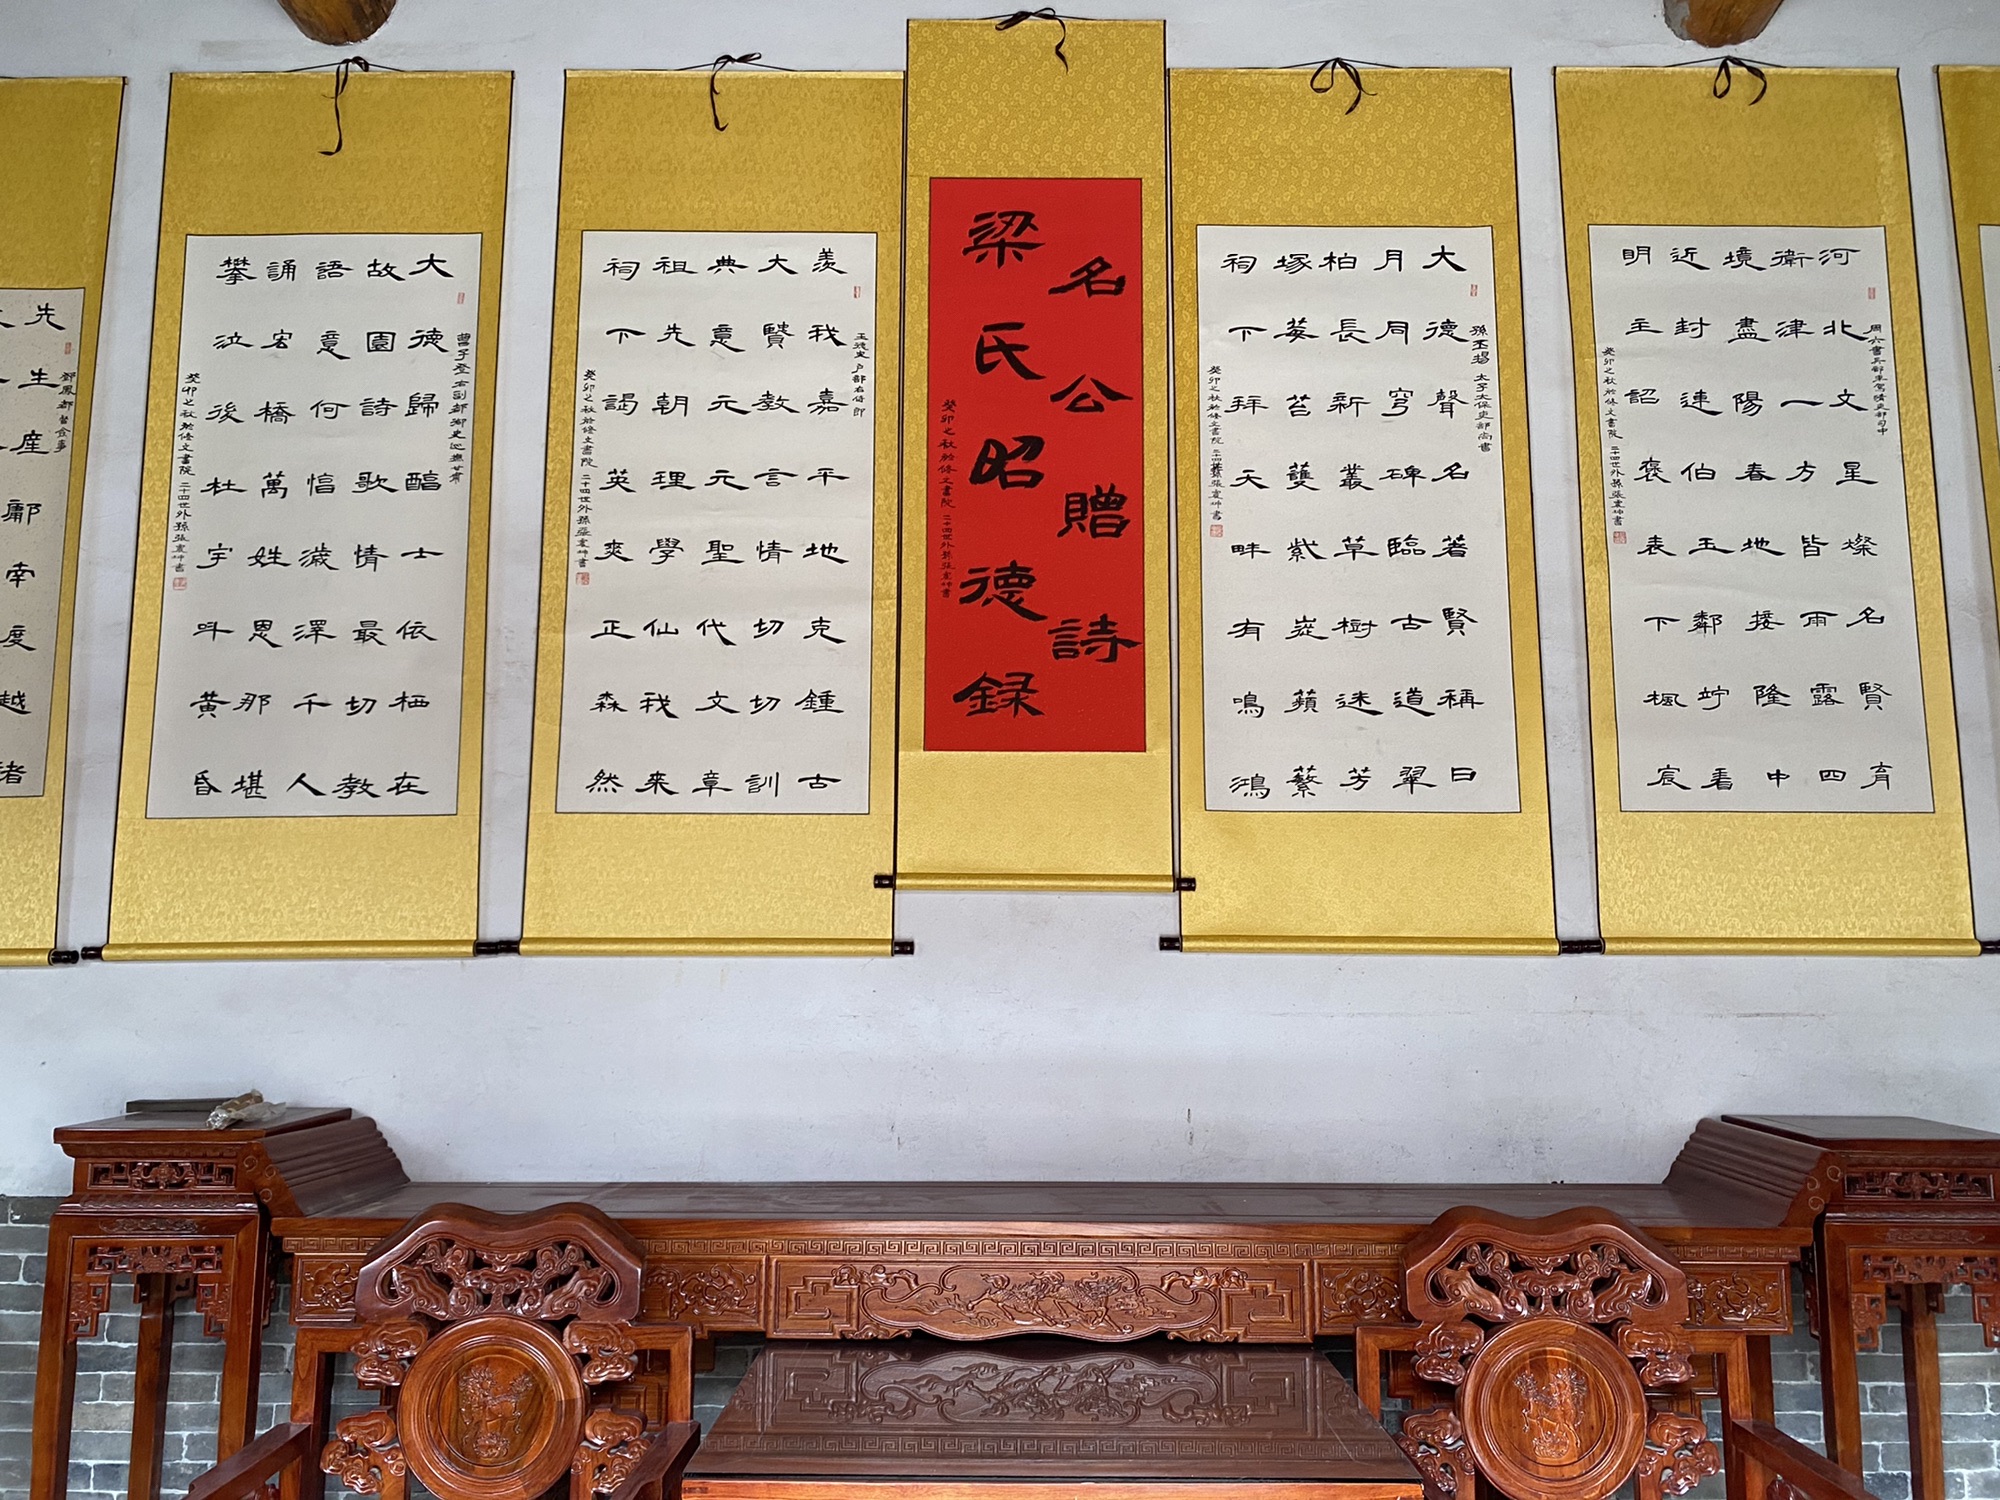 河北文星燦名賢育
衛津一方皆雨露四
境盡陽春地接隆中
近封連伯玉鄰竚看
明主詔褒表下楓宸
癸卯之秋於修文書院 二十四世外孫張震坤書
孫丕揚 太子太保吏部尚書
大德聲名著賢稱日
月同穹碑臨古道翠
柏長新叢草樹迷芳
塚莓苔紫蘋蘩
祠下拜天畔有鳴鴻
癸卯之秋於修文書院 二十四世外孫張震坤書
名公贈詩
梁氏昭德録
癸卯之秋於修文書院 二十四世外孫張震坤書
户部右侍郎
羨我嘉平地克鍾古
大賢教言情切切訓
典意元元聖代文章
祖先朝理學仙我來
祠下謁英爽正森然
癸卯之秋於修文書院 二十四世外孫張震坤書
曹子登 右副都御史巡撫甘肅
大德歸醕士依栖在
故園詩歌情最切教
語意何慆濊澤千人
誦宏橋萬姓恩那堪
攀泣後杜宇叫黄昏
癸卯之秋於修文書院 二十四世外孫張震坤書
先生産鄗南度越諸